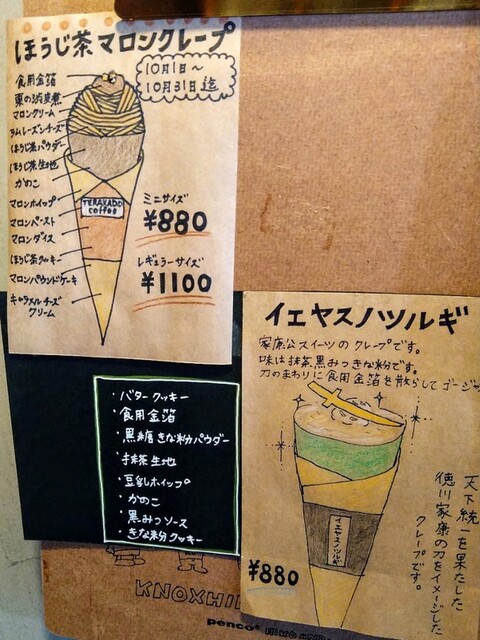 ほうじ茶マロンクレープ
10月1日〜
10月31日迄
食用金箔
栗の渋皮煮
マロンクリーム
ラムレーズンチーズ
ほうじ茶パウダー
ほうじ茶生地
かのこ
マロンホイップ
マロンペースト
マロンダイス
ほうじ茶クッキー
マロンパウンドケーキ
キャラメルチーズ
クリーム
TERAKADO
coffee
ミニサイズ
¥880
レギュラーサイズ
¥1100
・バタークッキー
・食用金箔
・黒糖きな粉パウダー
・抹茶生地
・豆乳ホイップ
・かのこ
・黒みつソース
・きな粉クッキー
イエヤスノツルギ
家康公スイーツのクレープです。
味は抹茶、黒みつきな粉です。
刀のまわりに食用金箔を散らしてゴージャ
天下統一を果たした
徳川家康の刀をイメージした
クレープです。
イエヤスノツルギ
¥880
KNOXHI
penco